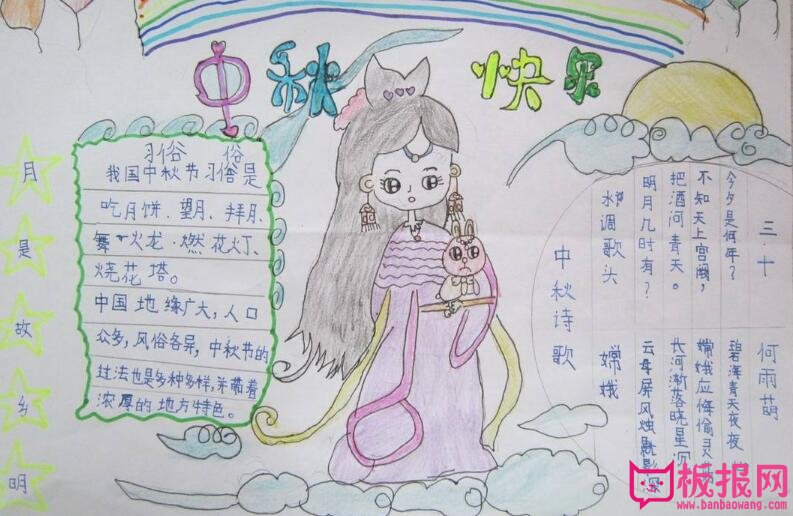 中秋 快乐
月是故乡明
习俗 俗
我国中秋节习俗是
吃月饼、望月、拜月、
舞火龙、燃花灯、
烧花塔。
中国地缘广大，人口
众多，风俗各异，中秋节的
过法也是多种多样，并带着
浓厚的地方特色。
三.十 何雨萌
中秋诗歌
水调歌头
明月几时有？
把酒问青天。
不知天上宫阙，
今夕是何年？
嫦娥
云母屏风烛影深
长河渐落晓星沉
嫦娥应悔偷灵
碧海青天夜夜
板报网
www.banbaowang.com